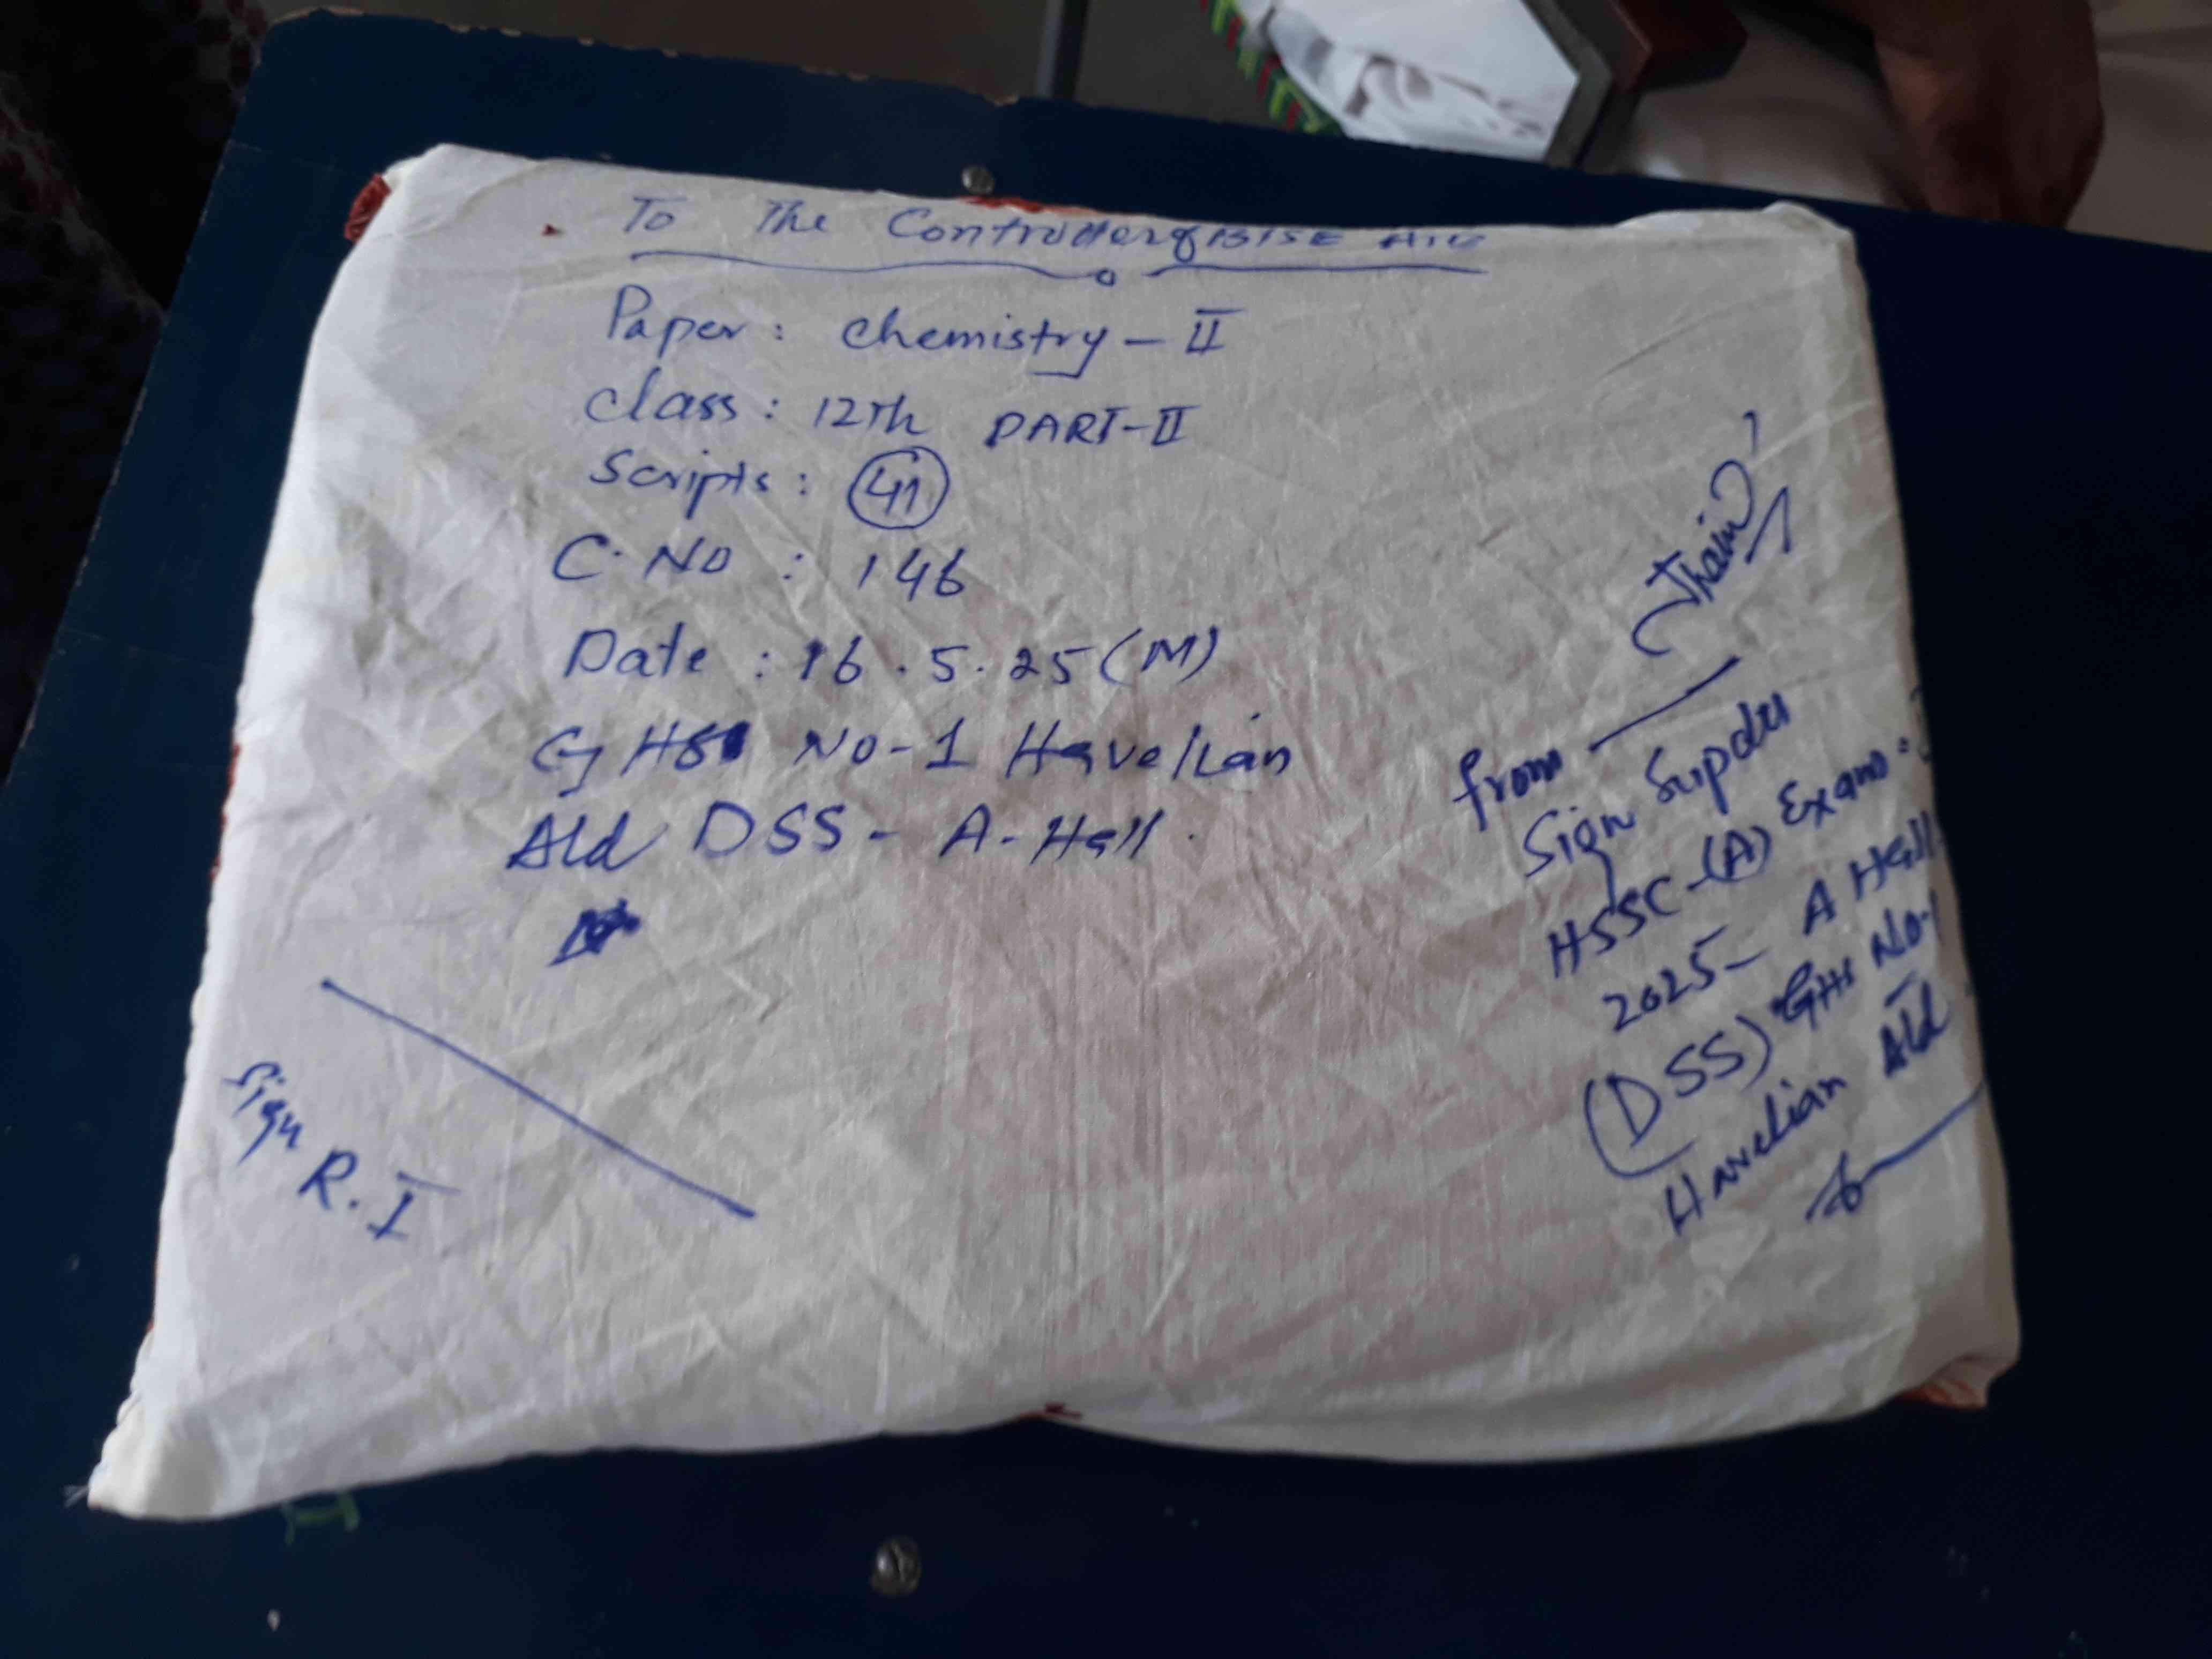 To The Controller of BISE
Paper: Chemistry - II
Class: 12th PART-II
Scripts: 41
C.NO: 146
Date: 16.5.25 (M)
GHS No-1 Havelian
Atd DSS - A-Hall.
from
Sign Supdtt
HSSC-(A) Exam.
2025- A Hall
(DSS) GHS No-1
Havelian Atd
Sign R.I